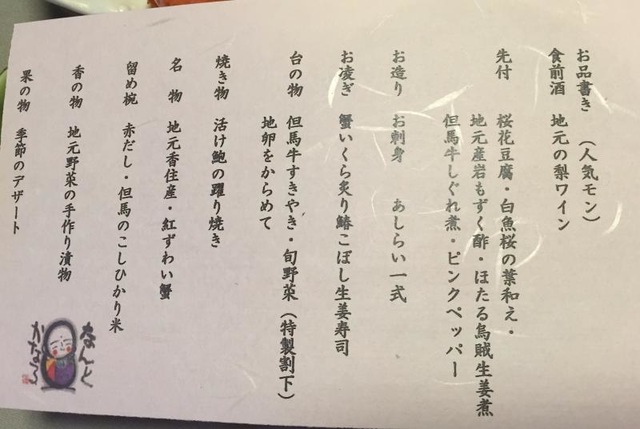 お品書き　（人気モン）
食前酒　地元の梨ワイン
先付　桜花豆腐・白魚桜の葉和え・
地元産岩もずく酢・ほたる烏賊生姜煮
但馬牛しぐれ煮・ピンクペッパー
お造り　お刺身　あしらい一式
お凌ぎ　蟹いくら炙り鰆こぼし生姜寿司
台の物　但馬牛すきやき・旬野菜（特製割下）
地卵をからめて
焼き物　活け鮑の躍り焼き
名　物　地元香住産・紅ずわい蟹
留め椀　赤だし・但馬のこしひかり米
香の物　地元野菜の手作り漬物
果の物　季節のデザート
なんと
かなる